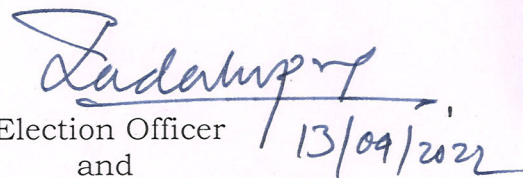 Election Officer
13/09/2022
and